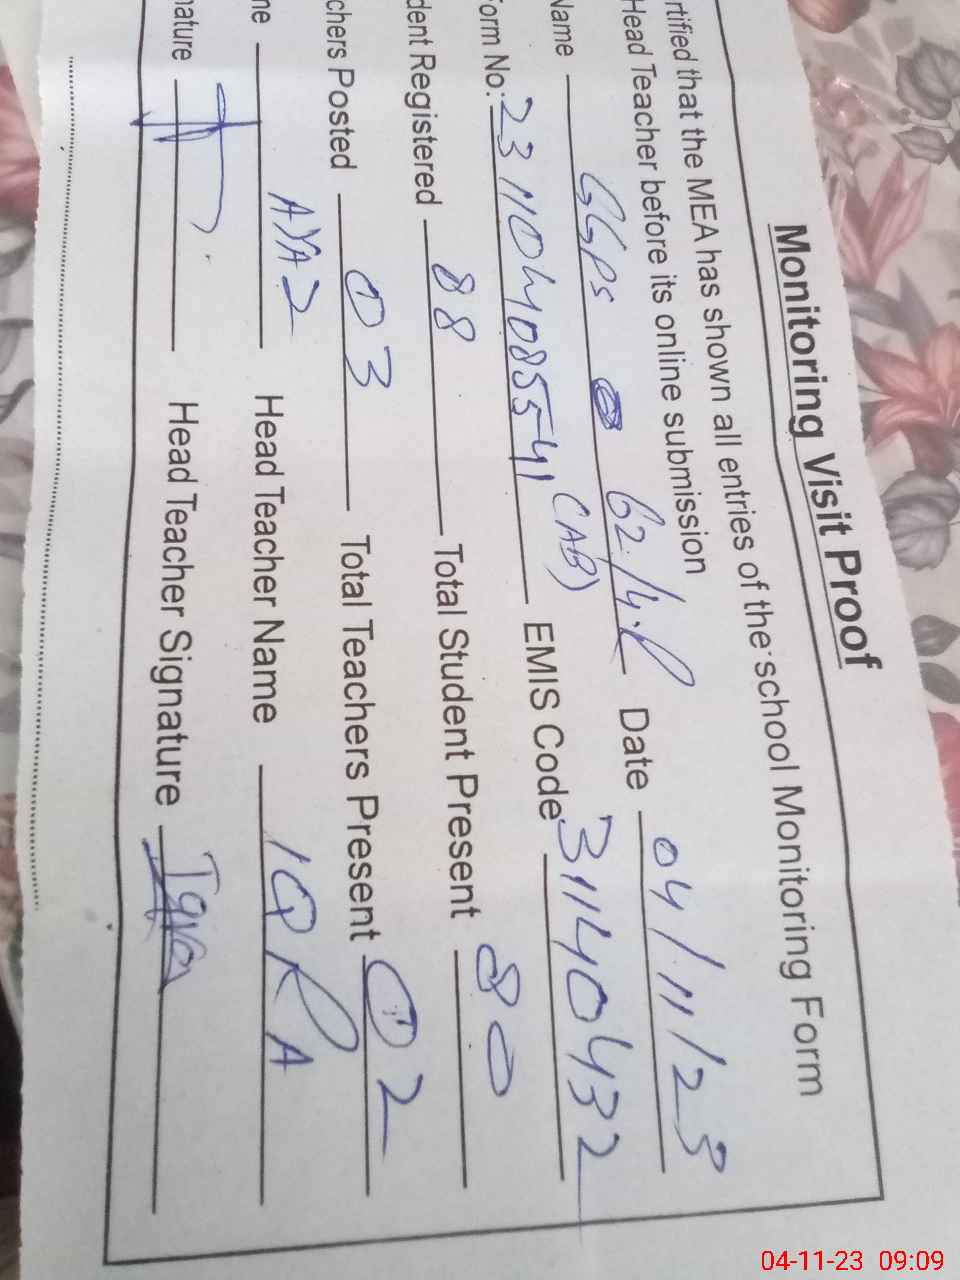 Monitoring Visit Proof
rtified that the MEA has shown all entries of the school Monitoring Form
Head Teacher before its online submission
Name GGPS 62/4.R Date 04/11/23
Form No: 23110404085541 (AB) EMIS Code 31140432
dent Registered 88 Total Student Present 80
chers Posted 03 Total Teachers Present 02
me AYAZ Head Teacher Name IQRA
nature Head Teacher Signature Iqra
04-11-23 09:09